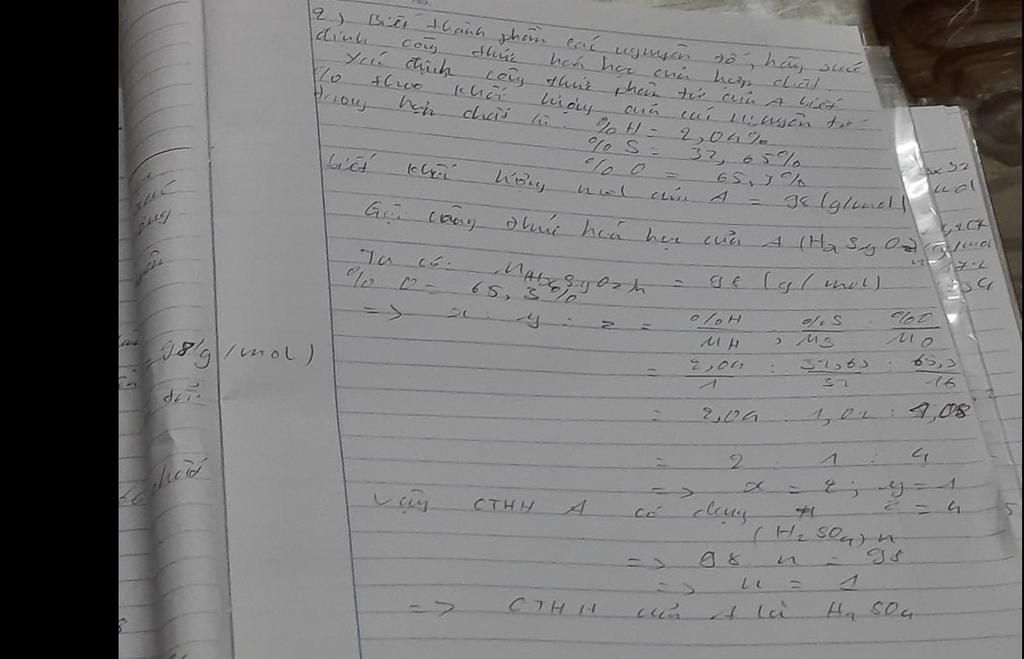 2) Biết thành phần các nguyên tố, hãy xác
định công thức hoá học của hợp chất.
Xác định công thức phân tử của A biết
% theo khối lượng của các nguyên tố
trong hợp chất là: %H = 2,04%
%S = 32,65%
%O = 65,3%
biết khối lượng mol của A = 98 (g/mol)
Gọi công thức hoá học của A (HxSyOz)n
Ta có: M(HxSyOz)n = 98 (g/mol)
%O = 65,3%
=> x : y : z = %H/MH : %S/MS : %O/MO
= 2,04/1 : 32,65/32 : 65,3/16
= 2,04 : 1,02 : 4,08
= 2 : 1 : 4
=> x = 2; y = 1
Vậy CTHH A có dạng z = 4
(H2SO4)n
=> 98 n = 98
=> n = 1
=> CTHH của A là H2SO4
98(g/mol)